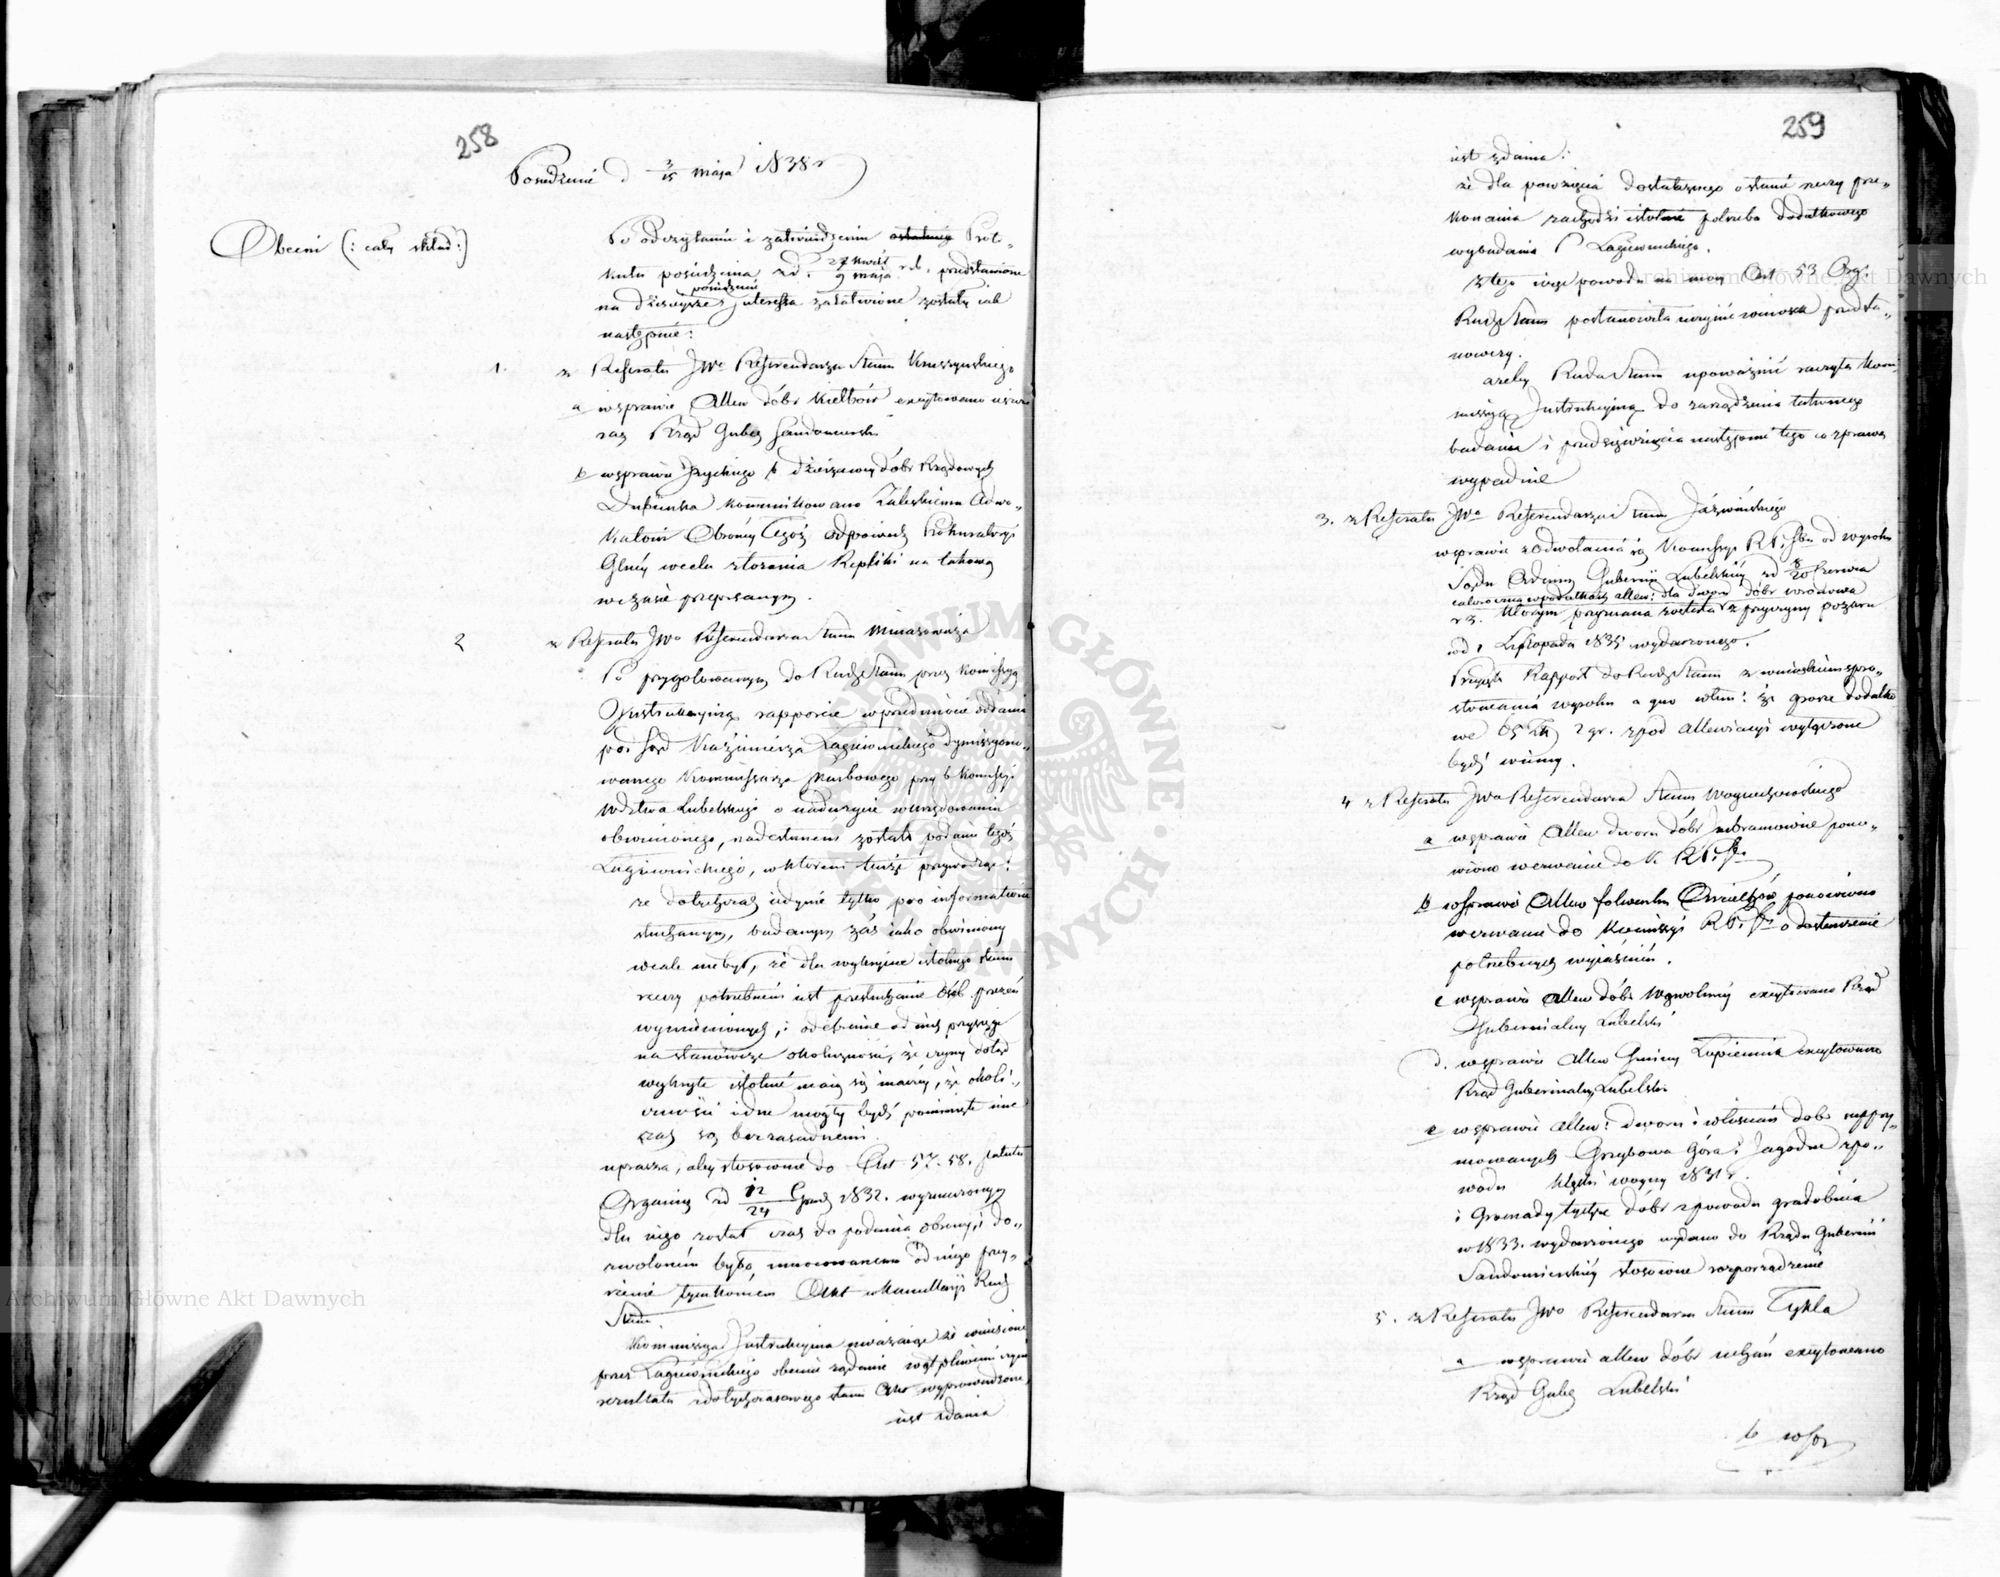 258
Posiedzenie d 3/15 Maja 1838 r
Obecni (: cały skład :)
Po odczytaniu i zatwierdzeniu ostatniego Proto-
kułu posiedzenia z d. 27 Kwiet/9 Maja r. b. przedstawione
na dzisiejsze posiedzenie Interessa załatwione zostały jak
następnie:
1. z Referatu JWo Referendarza Stanu Kruszyńskiego
a w sprawie Allew dóbr Kiełbów excytowano
raz Rząd Guber Sandomierski
b w sprawie dzierżawcy dóbr Rządowych
kommunikowano Zaleskiemu Adwo-
katowi Obrońcy Tegoż odpowiedź Prokuratoryi
Głney w celu złożenia Repliki na takową
w czasie przepisanym.
2 z Referatu JWo Referendarza Stanu
Po przygotowanym do Rady Stanu przez Kommissyą
Instrukcyiną rapporcie w przedmiocie oddania
pod Sąd Kaźmierza Łagiewnickiego dymissyono-
wanego Kommissarza Skarbowego przy b. Kommissyi
Wdztwa Lubelskiego o nadużycie w urzędowaniu
obwinionego, nadesłanem zostało podanie tegoż
Łagiewnickiego, w którem tenże przywodząc:
że dotychczas jedynie tylko pro informatione
słuchanym, badanym zaś jako obwiniony
wcale nie był, że dla wykrycia istotnego stanu
rzeczy potrzebnem jest przesłuchanie Osób przezeń
wymienionych, i odebranie od nich przysięgi
na stanowcze okoliczności, że czyny dotąd
wykryte istotnie mają się inaczej, że okoli-
czności jedne mogły bydź pominięte inne
zaś są bezzasadnemi.
uprasza, aby stosownie do Art. 57. 58. Statutu
Organicz z d 12/24 Grud 1832. wyznaczonym
dla niego został czas do podania obrony, i do-
zwolonem było umocowanemu od niego przej-
rzenie tymczasem Akt w Kancellaryi Rady
Stanu.
Kommissya Instrukcyina uważając że wniesione
przez Łagiewnickiego obecnie żądanie wątpliwemi czyni
rezultata z dotychczasowego stanu Akt wyprowadzone
jest zdania
259
jest zdania:
że dla powzięcia dostatecznego o stanie rzeczy prze-
konania zachodzi istotnie potrzeba dodatkowego
wybadania P Łagiewnickiego.
Z tego więc powodu na mocy Art 53 Org:
Rady Stanu postanowiła uczynić wniosek przedsta-
nowczy.
azeby Rada Stanu upoważnić raczyła Kom-
missyą Instrukcyiną do zarządzenia takowego
badania i przedsięwzięcia następnie tego co z prawa
wypadnie
3. z Referatu JWo Referendarza Stanu Jaźwińskiego
w sprawie z odwołania się Kommissyi R. P. i Sbu od wyroku
Sądu Admny Gubernii Lubelskiej z d 8/20 Czerwca
r z. którym przyznana została z przyczyny pożaru
w d 1 Listopada 1835 wydarzonego.
Przyjęto Rapport do Rady Stanu z wnioskiem spro-
stowania wyroku a quo w tem: że grosze dodatko
we 65 Zł 2 gr. z pod allewiacyi wyłączone
bydź winny.
4 z Referatu JWo Referendarza Stanu Wojciechowskiego
a w sprawie Allew dworu dóbr Zubramowice pono-
wiono wezwanie do K. R. P. i Sk.
b w sprawie Allew folwarku Chmielów ponowiono
wezwanie do Kommissyi R. P. i Sk o dostarczenie
potrzebnych wyjaśnień.
c w sprawie Allew dóbr Wąwolnicy excytowano Rząd
Gubernialny Lubelski
d. w sprawie Allew Gminy Łopiennik excytowano
Rząd Gubernialny Lubelski
e w sprawie allew: dworu i włościan dóbr suppry-
mowanych Grzybowa Góra i Jagodne z po-
wodu klęsk wojny 1831 r.
i Gromady tychże dóbr z powodu gradobicia
w 1833. wydarzonego wydano do Rządu Gubernii
Sandomierskiej stosowne rozporządzenie
5. z Referatu JWo Referendarza Stanu Tykla
a w sprawie allew dóbr excytowano
Rząd Guber Lubelski
b w spr
Archiwum Główne Akt Dawnych
Archiwum Główne Akt Dawnych
ARCHIWUM GŁÓWNE AKT DAWNYCH